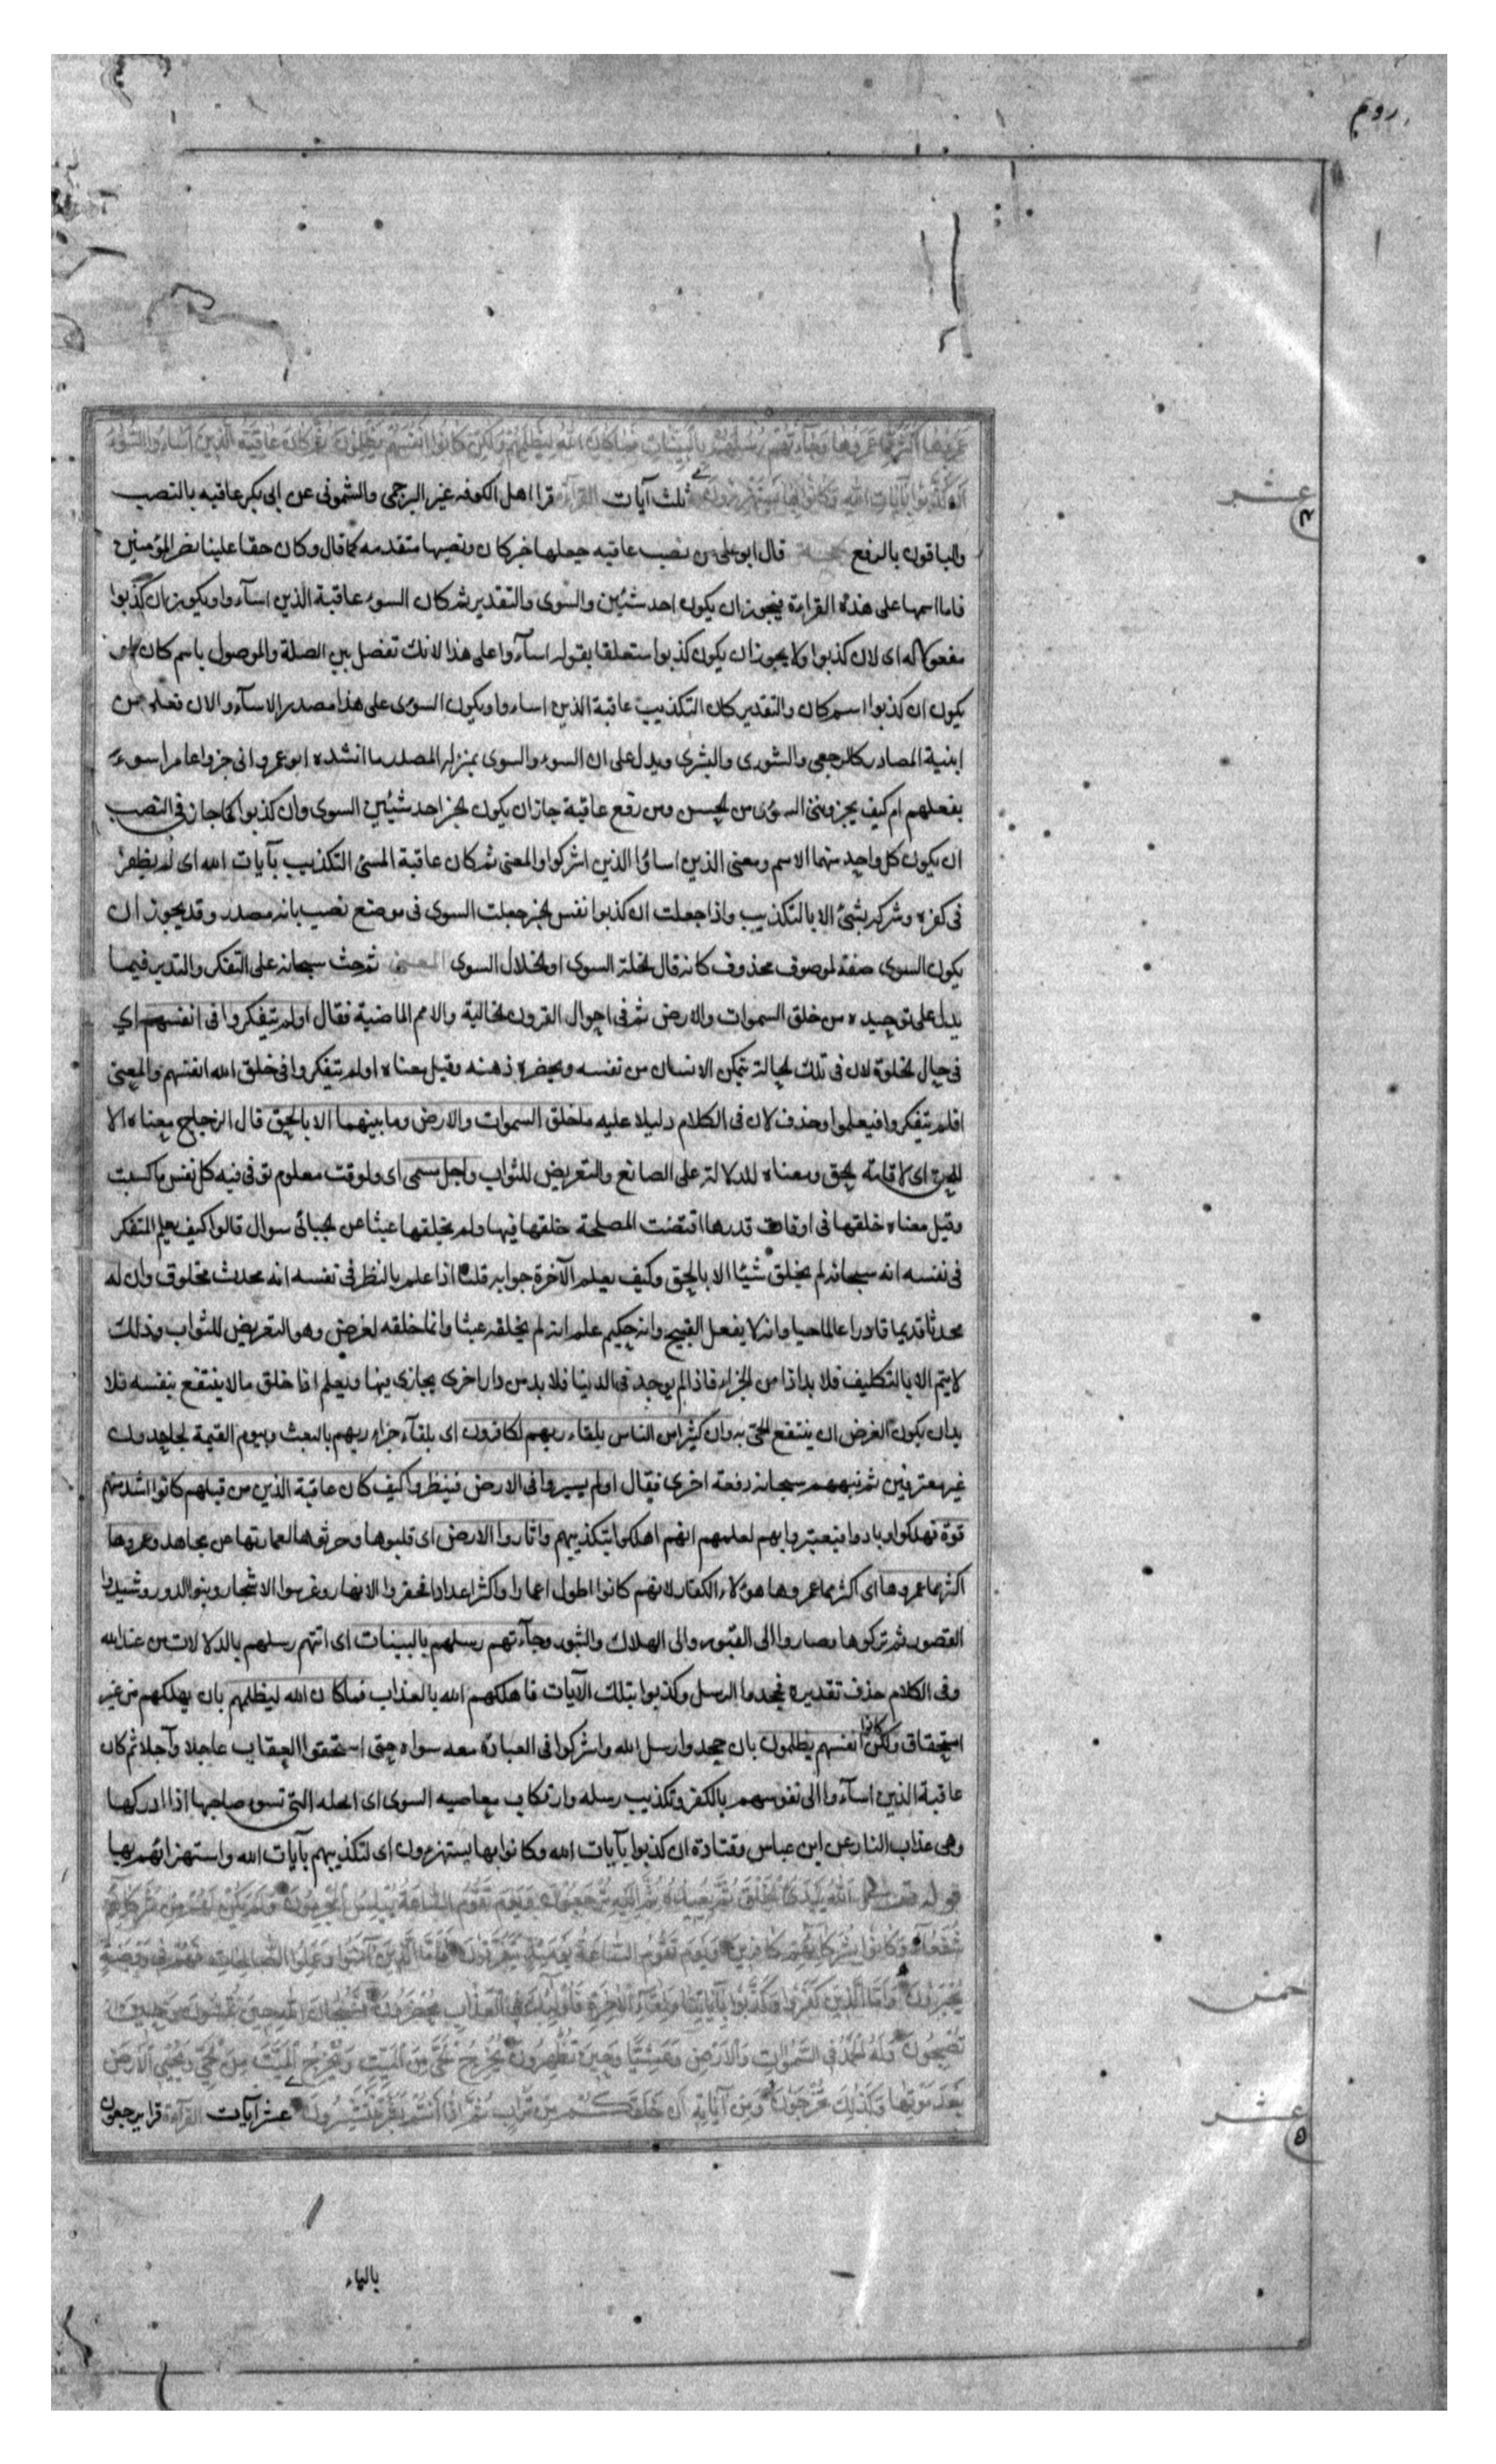 روم
عمروها اكثر مما عمروها وجاءتهم رسلهم بالبينات فما كان الله ليظلمهم ولكن كانوا انفسهم يظلمون ثم كان عاقبة الذين اساءوا السوء
ان كذبوا بآيات الله وكانوا بها يستهزءون ثلث آيات القراءة قرا اهل الكوفه غير البرجمى والشمونى عن ابى بكر عاقبه بالنصب
عشر
والباقون بالرفع الحجة قال ابو على من نصب عاقبه جعلها خبر كان ونصبها متقدمه كما قال وكان حقا علينا نصر المؤمنين
فاما اسمها على هذه القراءة فيجوز ان يكون احد شيئين والسوى والتقدير ثم كان السوء عاقبة الذين اسآءوا ويكون ان كذبوا
مفعولا له اى لان كذبوا ولا يجوز ان يكون كذبوا متعلقا بقوله اسآءوا على هذا لانك تفصل بين الصلة والموصول باسم كان او
يكون ان كذبوا اسم كان والتقدير كان التكذيب عاقبة الذين اساءوا ويكون السوى على هذا مصدر الاسآءو الان فعلى من
ابنية المصادر كالرجعى والشورى والبشرى ويدل على ان السوء والسوى بمنزله المصدر ما انشده ابو عمرو انى جزوا عامرا سوء
بفعلهم ام كيف يجزوننى السوى من الحسن ومن رفع عاقبة جاز ان يكون الخبر احد شيئين السوى وان كذبوا كما جاز فى النصب
ان يكون كل واحد منهما الاسم ومعنى الذين اساؤا الذين اشركوا والمعنى ثم كان عاقبة المسئ التكذيب بآيات الله اى لم يظفر
فى كفره وشركه بشئ الا بالتكذيب واذا جعلت ان كذبوا نفس الخبر جعلت السوى فى موضع نصب بانه مصدر وقد يجوز ان
يكون السوى صفة لموصوف محذوف كانه قال الخلة السوى او الخلال السوى المعنى ثم حث سبحانه على التفكر والتدبر فيما
يدل على توحيده من خلق السموات والارض ثم فى احوال القرون الخالية والامم الماضية فقال اولم يتفكروا فى انفسهم اي
فى حال الخلوة لان فى تلك الحالة يتمكن الانسان من نفسه ويحضره ذهنه وقيل معناه اولم يتفكروا فى خلق الله انفسهم والمعنى
اولم يتفكروا فيعلموا وحذف لان فى الكلام دليلا عليه ما خلق السموات والارض وما بينهما الا بالحق قال الزجاج معناه الا
للحق اى لاقامة الحق ومعناه للدلالة على الصانع والتعريض للثواب واجل مسمى اى ولوقت معلوم توفى فيه كل نفس ما كسبت
وقيل معناه خلقها فى اوقات قدرها اقتضت المصلحة خلقها فيها ولم يخلقها عبثا عن الجبائى سوال قالوا كيف يعلم المتفكر
فى نفسه انه سبحانه لم يخلق شيئا الا بالحق وكيف يعلم الآخرة جوابه قلنا اذا علم بالنظر فى نفسه انه محدث مخلوق وان له
محدثا قديما قادرا عالما حيا وانه لا يفعل القبيح وانه حكيم علم انه لم يخلقه عبثا وانما خلقه لغرض وهو التعريض للثواب وذلك
لا يتم الا بالتكليف فلا بد اذا من الجزاء فاذا لم يوجد فى الدنيا فلا بد من دار اخرى يجازى فيها ويعلم اذا خلق ما لا ينتفع بنفسه فلا
بد ان يكون الغرض ان ينتفع الحى به وان كثيرا من الناس بلقاء ربهم لكافرون اى بلقآء جزاء ربهم بالبعث وبيوم القيمة لجاحدون
غير معترفين ثم نبههم سبحانه دفعة اخرى فقال اولم يسيروا فى الارض فينظروا كيف كان عاقبة الذين من قبلهم كانوا اشد منهم
قوة فهلكوا وبادوا فيعتبروا بهم لعلمهم انهم اهلكوا بتكذيبهم واثاروا الارض اى قلبوها وحرثوها لعمارتها عن مجاهد وعمروها
اكثر مما عمروها اى اكثر مما عمروها هؤلاء الكفار لانهم كانوا اطول اعمارا واكثر اعدادا فحفروا الانهار وغرسوا الاشجار وبنوا الدور وشيدوا
القصور ثم تركوها وصاروا الى القبور والى الهلاك والثبور وجآءتهم رسلهم بالبينات اى اتتهم رسلهم بالدلالات من عند الله
وفى الكلام حذف تقديره فجحدوا الرسل وكذبوا بتلك الآيات فاهلكهم الله بالعذاب فما كان الله ليظلمهم بان يهلكهم من غير
استحقاق ولكن كانوا انفسهم يظلمون بان جحدوا رسل الله واشركوا فى العبادة معه سواه حتى استحقوا العقاب عاجلا وآجلا ثم كان
عاقبة الذين اسآءوا الى نفوسهم بالكفر وتكذيب رسله وارتكاب معاصيه السوى اى الخله التى تسوء صاحبها اذا ادركها
وهى عذاب النار عن ابن عباس وقتادة ان كذبوا بآيات الله وكانوا بها يستهزءون اى لتكذيبهم بآيات الله واستهزائهم بها
قوله تعالى الله يبدؤ الخلق ثم يعيده ثم اليه ترجعون ويوم تقوم الساعة يبلس المجرمون ولم يكن لهم من شركائهم
شفعاء وكانوا بشركائهم كافرين ويوم تقوم الساعة يومئذ يتفرقون فاما الذين آمنوا وعملوا الصالحات فهم فى روضة
يحبرون واما الذين كفروا وكذبوا بآياتنا ولقاء الآخرة فاولئك فى العذاب محضرون فسبحان الله حين تمسون وحين
خمس
تصبحون وله الحمد فى السموات والارض وعشيا وحين تظهرون يخرج الحى من الميت ويخرج الميت من الحى ويحيى الارض
بعد موتها وكذلك تخرجون ومن آياته ان خلقكم من تراب ثم اذا انتم بشر تنتشرون عشر آيات القراءة قرا يرجعون
عشر
بالياء